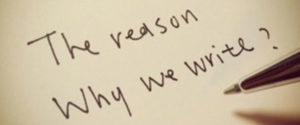 The reason
Why we write?